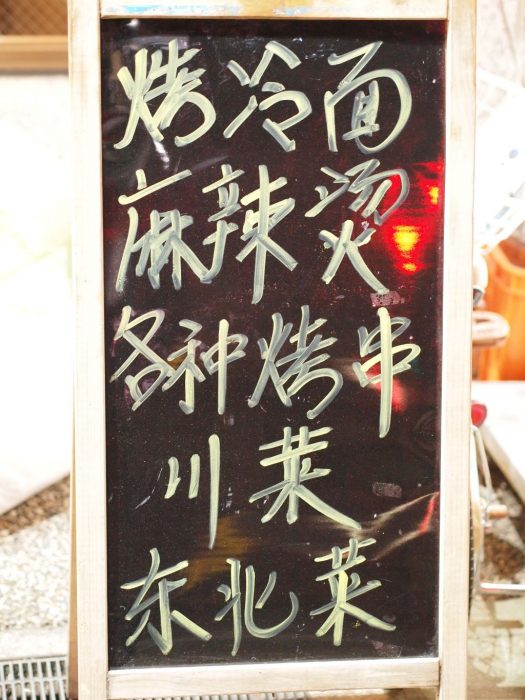 烤冷面
麻辣烫
各种烤串
川菜
东北菜